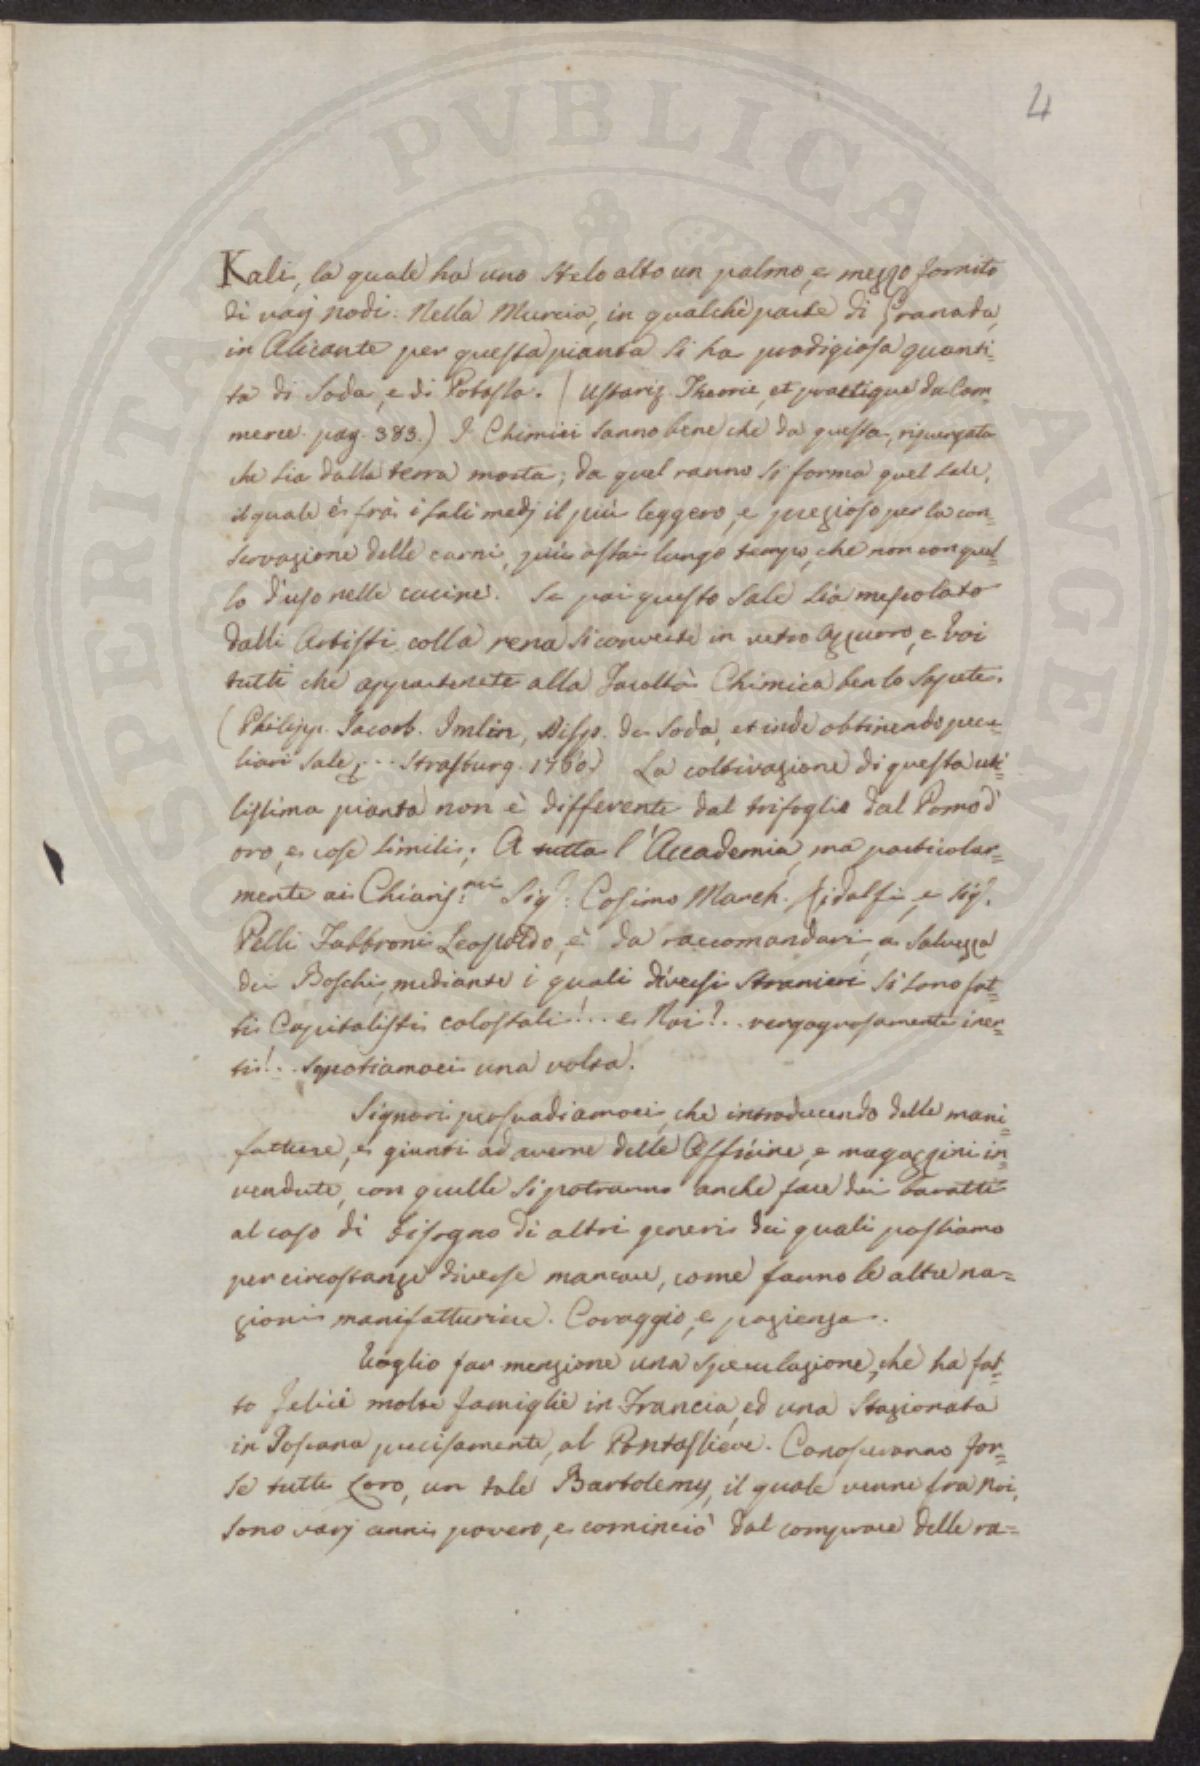 4
PROSPERITATI PVBLICAE AVGENDAE
Kali, la quale ha uno stelo alto un palmo, e mezzo fornito
di varj nodi. Nella Murcia, in qualche parte di Granada,
in Alicante per questa pianta si ha prodigiosa quanti=
tà di Soda, e di Potassa. (Ustariz. Theorie, et practique du Com=
merce. pag. 383.) I Chimici sanno bene che da questa, ripurgata
che sia dalla terra morta; da quel ranno si forma quel sale,
il quale è frà i sali medj il più leggero, e prezioso per la con=
servazione delle carni, più assai lungo tempo, che non con quel=
lo d'uso nelle cucine. Se poi questo Sale sia mescolato
dalli Artisti colla rena si converte in vetro azzurro, e Voi
tutti che appartenete alla Facoltà Chimica ben lo sapete.
(Philipp. Jacob. Imlin, Disp. de Soda, et inde obtinendo pecu=
liari sale, .. Strasburg. 1760.) La coltivazione di questa uti=
lissima pianta non è differente dal trifoglio dal Pomo d'
oro, e cose simili; A tutta l'Accademia, ma particolar=
mente ai Chiaris.mi Sig.: Cosimo March. Ridolfi, e Sig.
Pelli Fabbroni Leopoldo, è da raccomandarsi a salvezza
dei Boschi, mediante i quali diversi stranieri si sono fat=
ti Capitalisti colossali!... e Noi?.. vergognosamente iner=
ti!.. Spotiamoci una volta.
Signori persuadiamoci, che introducendo delle mani=
fatture, e giunti ad averne delle Officine, e magazzini in=
vendute, con quelle si potranno anche fare dei baratti
al caso di bisogno di altri generi dei quali possiamo
per circostanze diverse mancare, come fanno le altre na=
zioni manifatturiere. Coraggio, e pazienza.
Voglio far menzione una speculazione, che ha fat=
to felici molte famiglie in Francia, ed una stazionata
in Toscana precisamente, al Pontassieve. Conosceranno for=
se tutti Loro, un tale Bartolemy, il quale venne fra Noi,
sono varj anni povero, e cominciò dal comprare delle ra=